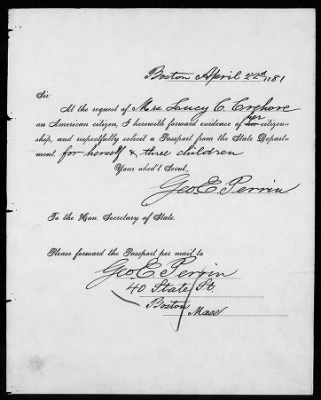 Boston April 22nd, 1881
Sir:
At the request of Mrs Lucy C. Crehore
an American citizen, I herewith forward evidence of her citizen-
ship, and respectfully solicit a Passport from the State Depart-
ment. for herself & three children
Your obed't Servt,
Geo E. Perrin
To the Hon. Secretary of State.
Please forward the Passport per mail to
Geo E. Perrin
40 State St.
Boston
Mass